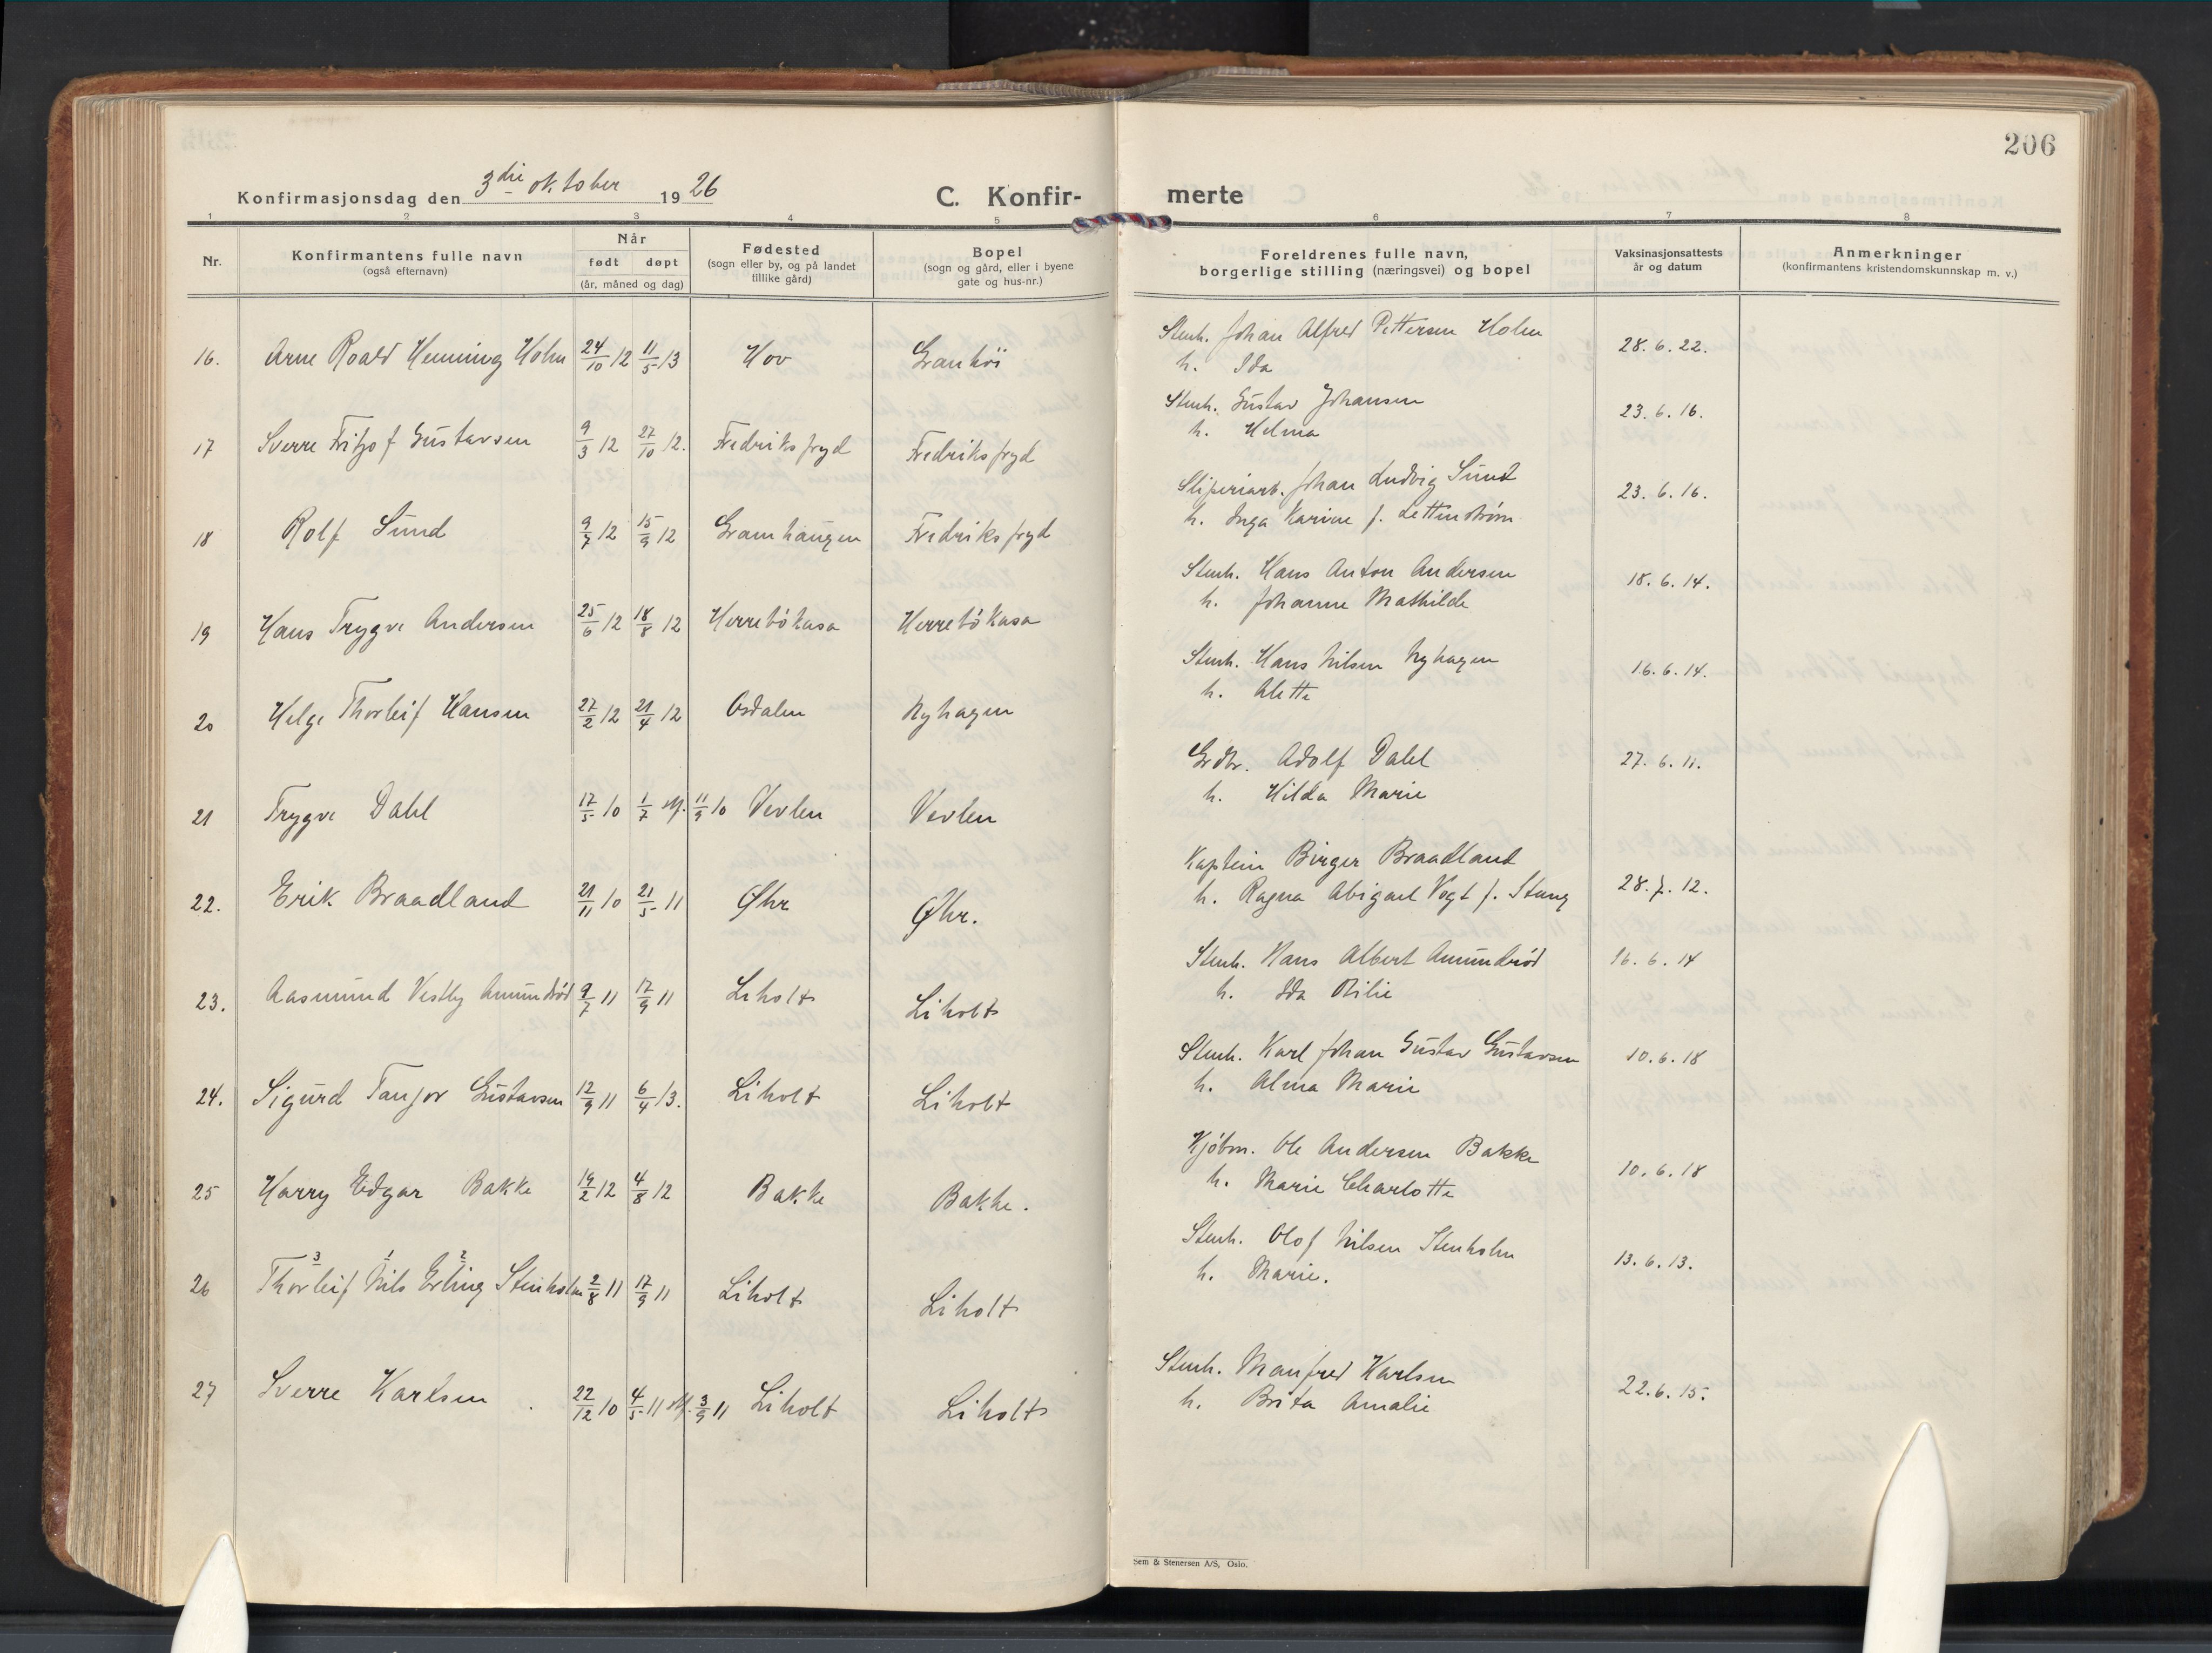 206
Konfirmasjonsdag den 3die oktober 1926
C. Konfir-
merte
1 2 3 4 5 6 7 8
Nr.
Konfirmantens fulle navn
(også efternavn)
Når
født døpt
(år, måned og dag)
Fødested
(sogn eller by, og på landet
tillike gård)
Bopel
(sogn og gård, eller i byene
gate og hus-nr.)
Foreldrenes fulle navn,
borgerlige stilling (næringsvei) og bopel
Vaksinasjonsattests
år og datum
Anmerkninger
(konfirmantens kristendomskunnskap m. v.)
16. Arne Roald Henning Holm 24/10 12 11/5 13 Hov Granhöi
Stenh. Johan Alfred Pettersen Holm
h. Ida
28.6.22.
17 Sverre Fritjof Gustavsen 9/3 12 27/10 12. Fredriksfryd Fredriksfryd
Stenh. Gustav Johansen
h. Helma
23.6.16.
18 Rolf Sund 9/7 12 15/9 12 Gramhaugen Fredriksfryd
Sliperiarb. Johan Ludvig Sund
h. Inga Karine f. Lettenström
23.6.16.
19 Hans Trygve Andersen 25/6 12 18/8 12 Herrebökasa Herrebökasa
Stenh. Hans Anton Andersen
h. Johanne Mathilde
18.6.14.
20 Helge Thorleif Hansen 27/2 12 21/4 12 Osdalen Nyhagen
Stenh. Hans Nilsen Nyhagen
h. Alette
16.6.14.
21 Trygve Dahl 17/5 10 1/7 st. 11/9 10 Vevlen Vevlen
Grdbr. Adolf Dahl
h. Hilda Marie
27.6.11.
22. Erik Braadland 21/11 10 21/5 11 Øhr Øhr.
Kaptein Birger Braadland
h. Ragna Abigael Vogt f. Stang
28.7.12.
23. Aasmund Vestby Amundröd 9/7 11 17/9 11 Liholt Liholt
Stenh. Hans Albert Amundröd
h. Ida Otilie
16.6.14
24. Sigurd Tanjor Gustavsen 12/9 11 6/4 13. Liholt Liholt
Stenh. Karl Johan Gustav Gustavsen
h. Alma Marie
10.6.18
25 Harry Edgar Bakke 14/2 12 4/8 12 Bakke Bakke.
Kjöbm. Ole Andersen Bakke
h. Marie Charlotte
10.6.18
3 1 2
26 Thorleif Nils Erling Stenholm 2/8 11 17/9 11 Liholt Liholt
Stenh. Olof Nilsen Stenholm
h. Marie.
13.6.13.
27 Sverre Karlsen 22/12 10 4/5 11 st. 3/9 11 Liholt Liholt
Stenh. Manfred Karlsen
h. Brita Amalie
22.6.15.
Sem & Stenersen A/S, Oslo.